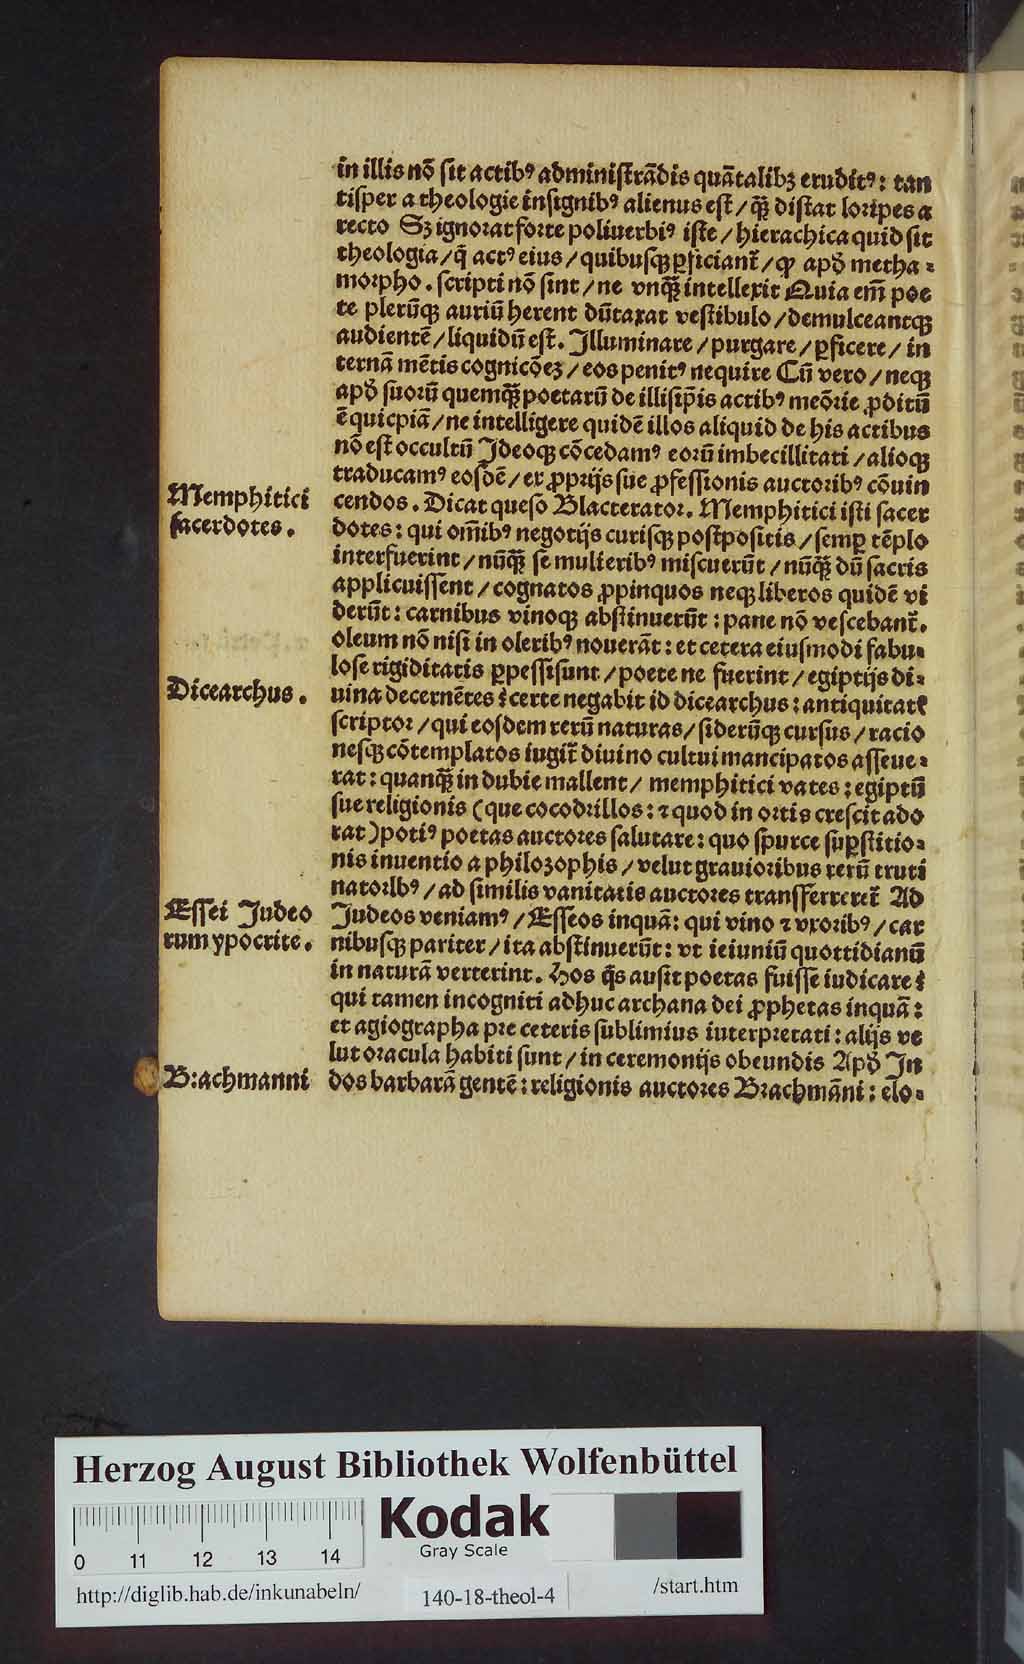 in illis nō sit actibꝰ administrādis quātalibꝫ eruditꝰ: tan
tisper a theologie insignibꝰ alienus est / qꝫ̄ distat loripes a
recto Sꝫ ignorat forte poliuerbiꝰ iste / hierachica quid sit
theologia / q̄ actꝰ eius / quibusqꝫ ꝑficiant̄ / ꝙ apď metha-
morpho. scripti nō sint / ne vnqꝫ̄ intellexit Quia em̄ poe
te plerūqꝫ auriū herent dūtaxat vestibulo / demulceantqꝫ
audientē / liquidū est. Illuminare / purgare / ꝑficere / in
ternā mētis cognicōeꝫ / eos penitꝰ nequire Cū vero / neqꝫ
apď suorū quemqꝫ̄ poetarū de illisip̄is actibꝰ meōrie ꝓditū
ē quicpiā / ne intelligere quidē illos aliquid de his actibus
nō est occultū Ideoqꝫ cōcedamꝰ eorū imbecillitati / alioqꝫ
traducamꝰ eosdē / ex ꝓprijs sue ꝓfessionis auctoribꝰ cōuin
Memphitici
sacerdotes.
cendos. Dicat queso Blacterator. Memphitici isti sacer
dotes: qui om̄ibꝰ negotijs curisqꝫ postpositis / semꝑ tēplo
interfuerint / nūqꝫ̄ se mulieribꝰ miscuerūt / nūqꝫ̄ dū sacris
applicuissent / cognatos ꝓpinquos neqꝫ liberos quidē vi
derūt: carnibus vinoqꝫ abstinuerūt: pane nō vescebant̄.
oleum nō nisi in oleribꝰ nouerāt: et cetera eiusmodi fabu-
lose rigiditatis ꝑpessi sunt / poete ne fuerint / egiptijs di-
Dicearchus.
uina decernētes: certe negabit id dicearchus: antiquitatꝭ
scriptor / qui eosdem rerū naturas / siderūqꝫ cursus / racio
nesqꝫ cōtemplatos iugit̄ diuino cultui mancipatos asseue-
rat: quanqꝫ̄ in dubie mallent / memphitici vates: egiptū
sue religionis (que cocodrillos: ⁊ quod in ortis crescit ado
rat) potiꝰ poetas auctores salutare: quo spurce suꝑstitio-
nis inuentio a philozophis / velut grauioribus rerū truti
natorlbꝰ / ad similis vanitatis auctores transfferreret̄ Ad
Essei Iudeo
rum ypocrite.
Iudeos veniamꝰ / Esseos inquā: qui vino ⁊ vxoribꝰ / car
nibusqꝫ pariter / ita abstinuerūt: vt ieiuniū quottidianū
in naturā verterint. Hos q̄s ausit poetas fuisse iudicare:
qui tamen incogniti adhuc archana dei ꝓphetas inquā:
et agiographa pre ceteris sublimius iuterpretati: alijs ve
lut oracula habiti sunt / in ceremonijs obeundis Apď In
Brachmanni
dos barbarā gentē: religionis auctores Brachmāni: elo-
Herzog August Bibliothek Wolfenbüttel
0 11 12 13 14
Kodak
Gray Scale
http://diglib.hab.de/inkunabeln/
140-18-theol-4
/start.htm